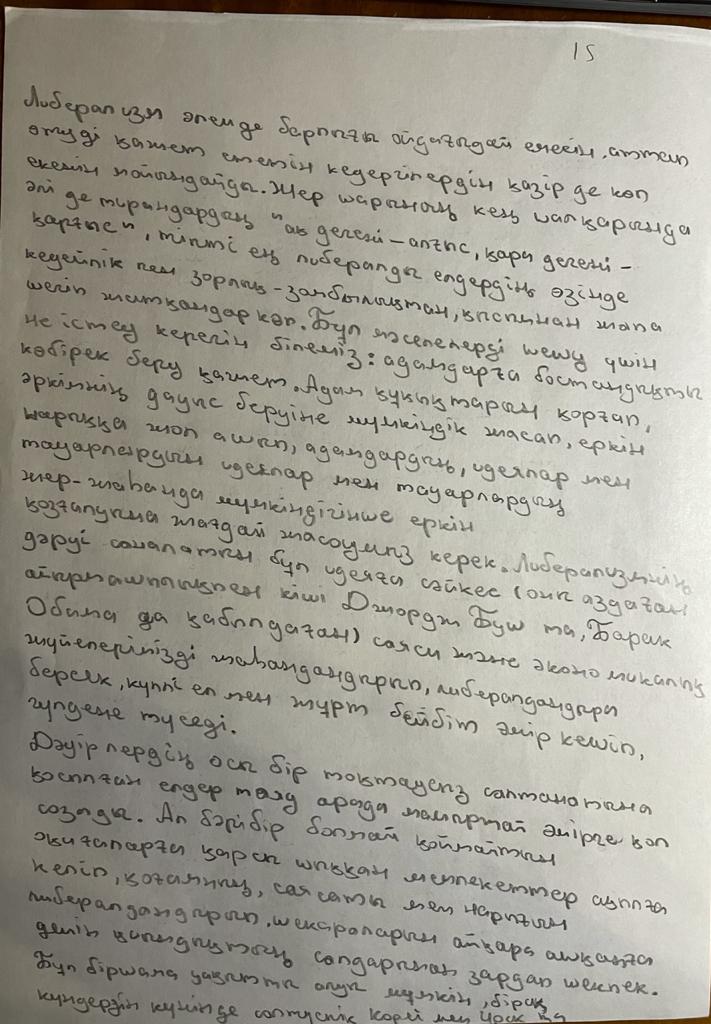 15
Либерализм әлемде барлығы ойдағыдай емесін, аттап
өтуді қажет ететін кедергілердің қазір де көп
екенін мойындайды. Жер шарының кең малқарында
әлі де тирандардың "ақ дегені – алғыс, қара дегені –
қарғыс", тіпті ең либералды елдердің өзінде
кедейлік пен зорлық-зомбылықтан, қысымнан жапа
шегіп жатқандар көп. Бұл мәселелерді шешу үшін
не істеу керегін білеміз: адамдарға бостандықты
көбірек беру қажет. Адам құқықтарын қорғап,
әркімнің дауыс беруіне мүмкіндік жасап, еркін
нарыққа жол ашып, адамдардың, идеялар мен
тауарлардың идеялар мен тауарлардың
жер-жаһанда мүмкіндігінше еркін
қозғалуына жағдай жасауымыз керек. Либерализмнің
дәруі саналатын бұл идеяға сәйкес (оны аздаған
айырмашылықпен кіші Джордж Буш та, Барак
Обама да қабылдаған) саяси және экономикалық
жүйелерімізді жаһандандырып, либералдандыра
берсек, күллі ел мен жұрт бейбіт өмір кешіп,
гүлдене түседі.
Дәуірлердің осы бір тоқтаусыз салтанатына
қосылған елдер таяу арада мамыртай өмірге қол
созады. Ал бәрібір болмай қоймайтын
оқиғаларға қарсы шыққан мемлекеттер ақылға
келіп, қоғамның, саясаты мен нарығын
либералдандырып, шекараларын айқара ашқанға
дейін қиындықтың салдарынан зардап шекпек.
Бұл біршама уақытты алуы мүмкін, бірақ
күндердің күнінде солтүстік Корей мен Ирак та